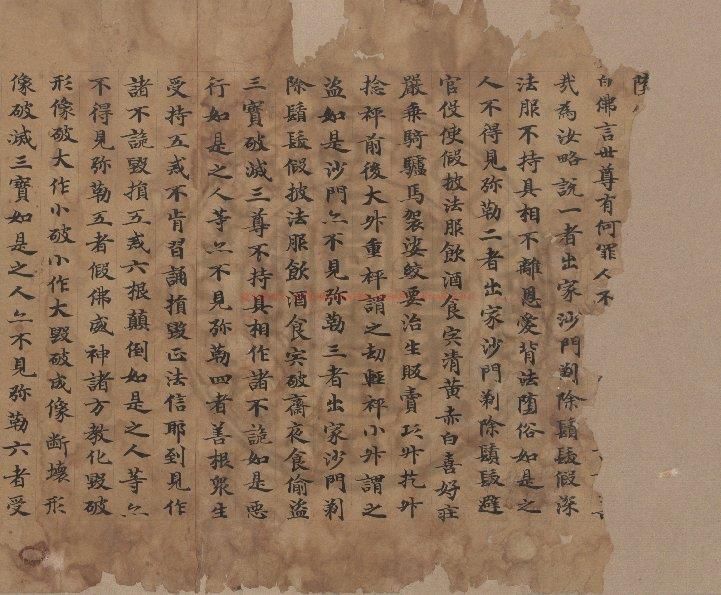 白佛言世尊有何罪人不
我為汝略說一者出家沙門剃除鬚髮假染
法服不持具相不離恩愛背法墮俗如是之
人不得見弥勒二者出家沙門剃除鬚髮避
官伇使假披法服飲酒食宍清黃赤白喜好庄
嚴乘騎驢馬袈娑絞要治生販賣巧升扢升
捨秤前後大升重秤謂之劫輕秤小升謂之
盜如是沙門亦不見弥勒三者出家沙門剃
除鬚髮假披法服飲酒食宍破齋夜食偷盜
三寶破滅三尊不持具相作諸不詭如是惡
行如是之人等亦不見弥勒四者善根眾生
受持五戒不肯習誦損毀正法信耶到見作
諸不詭毀損五戒六根顛倒如是之人等亦
不得見弥勒五者假佛威神諸方教化毀破
形像破大作小破小作大毀破成像斷壞形
像破滅三寶如是之人亦不見弥勒六者受